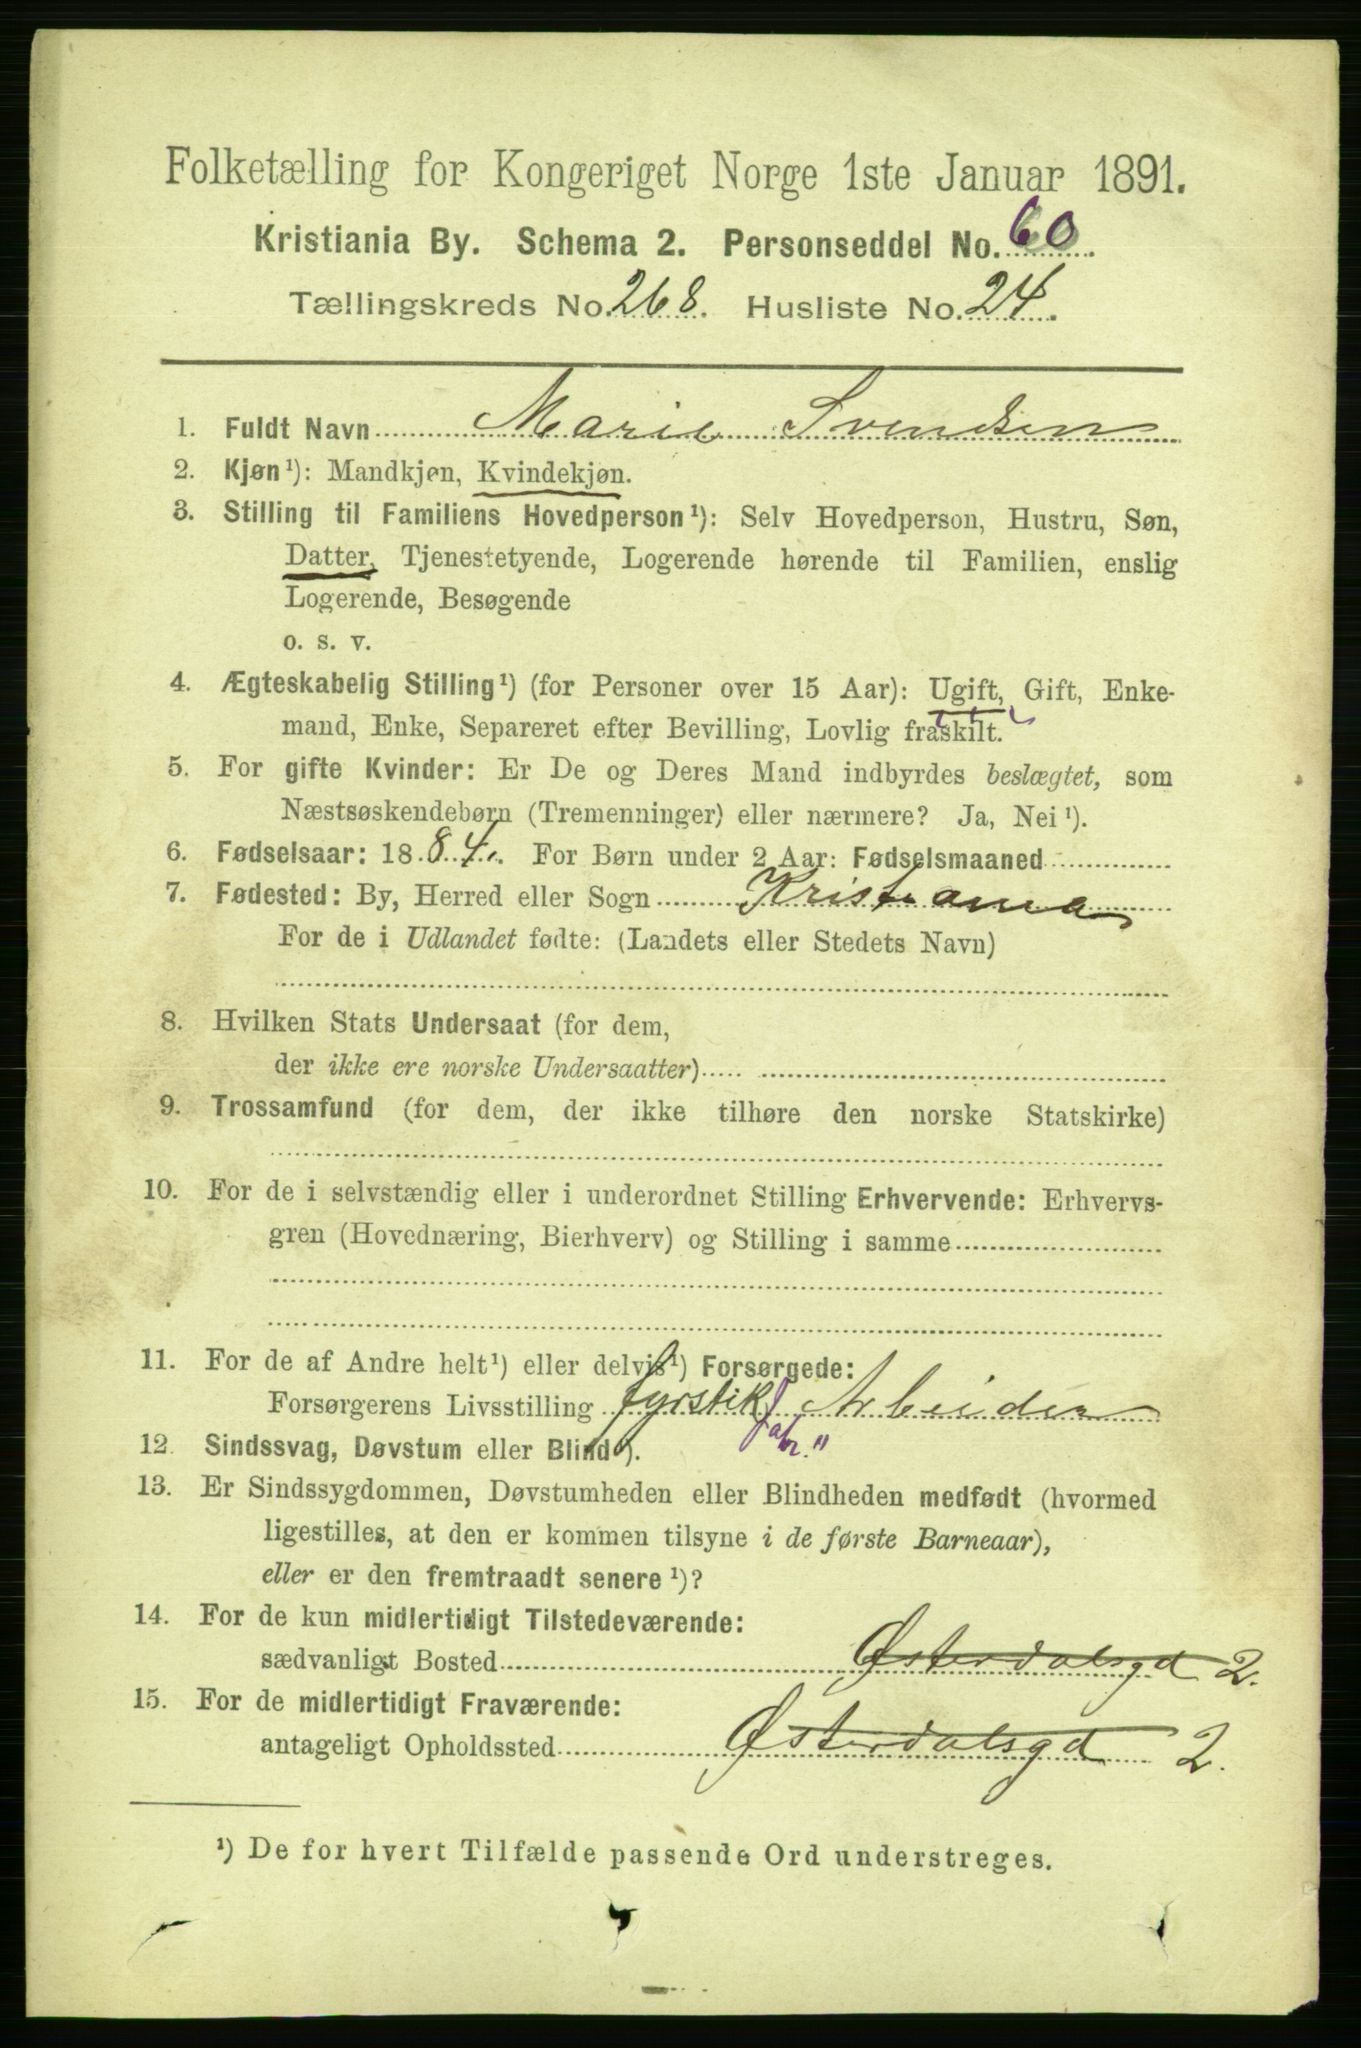 Folketælling for Kongeriget Norge 1ste Januar 1891.
Kristiania By. Schema 2. Personseddel No. 60.
Tællingskreds No. 268. Husliste No. 24.
1. Fuldt Navn Marie Svendsen
2. Kjøn¹): Mandkjøn, Kvindekjøn.
3. Stilling til Familiens Hovedperson¹): Selv Hovedperson, Hustru, Søn,
Datter, Tjenestetyende, Logerende hørende til Familien, enslig
Logerende, Besøgende
o. s. v.
4. Ægteskabelig Stilling¹) (for Personer over 15 Aar): Ugift, Gift, Enke-
mand, Enke, Separeret efter Bevilling, Lovlig fraskilt.
5. For gifte Kvinder: Er De og Deres Mand indbyrdes beslægtet, som
Næstsøskendebørn (Tremenninger) eller nærmere? Ja, Nei ¹).
6. Fødselsaar: 1884. For Børn under 2 Aar: Fødselsmaaned
7. Fødested: By, Herred eller Sogn Kristiania
For de i Udlandet fødte: (Landets eller Stedets Navn)
8. Hvilken Stats Undersaat (for dem,
der ikke ere norske Undersaatter)
9. Trossamfund (for dem, der ikke tilhøre den norske Statskirke)
10. For de i selvstændig eller i underordnet Stilling Erhvervende: Erhvervs-
gren (Hovednæring, Bierhverv) og Stilling i samme
11. For de af Andre helt¹) eller delvis¹) Forsørgede:
Forsørgerens Livsstilling fyrstik Arbeider
fabr. "
12. Sindssvag, Døvstum eller Blind¹).
13. Er Sindssygdommen, Døvstumheden eller Blindheden medfødt (hvormed
ligestilles, at den er kommen tilsyne i de første Barneaar),
eller er den fremtraadt senere ¹)?
14. For de kun midlertidigt Tilstedeværende:
sædvanligt Bosted Østerdalsgd 2.
15. For de midlertidigt Fraværende:
antageligt Opholdssted Østerdalsgd 2.
¹) De for hvert Tilfælde passende Ord understreges.